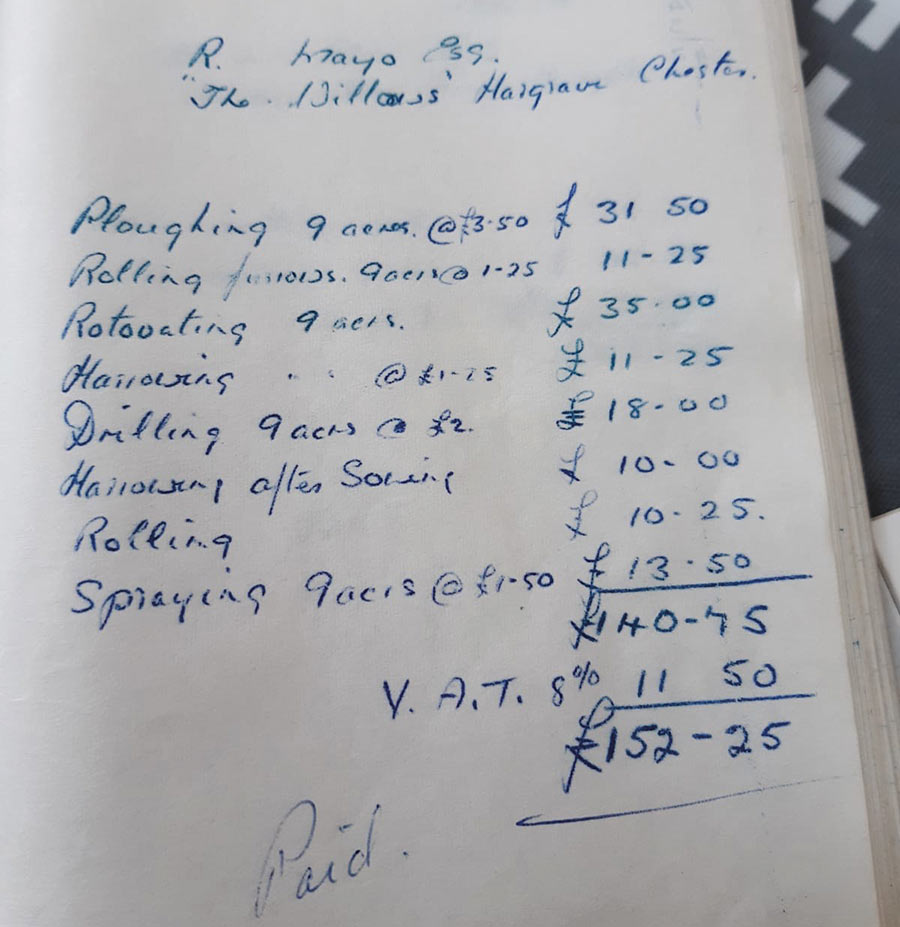 R. Mayo Esq.
"The Willows" Hargrave Chester.
Ploughing 9 acres. @ £3·50 £ 31 50
Rolling furrows. 9 acrs @ 1-25 11-25
Rotovating 9 acrs. £ 35·00
Harrowing " " @ £1-25 £ 11-25
Drilling 9 acrs @ £2. £ 18-00
Harrowing after Sowing £ 10-00
Rolling £ 10-25.
Spraying 9 acrs @ £1-50 £ 13·50
£140-75
V.A.T. 8% 11 50
£152-25
Paid.